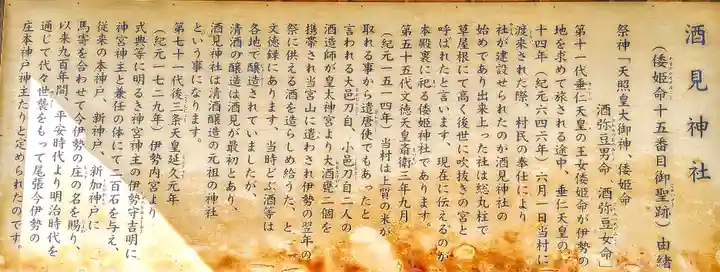 酒見神社
(倭姫命十五番目御聖跡)由緒
祭神「天照皇大御神 倭姫命
酒弥豆男命 酒弥豆女命」
第十一代垂仁天皇の王女倭姫命が伊勢の
地を求めて旅される途中、垂仁天皇の二
十四年(紀元六四六年)六月一日当村に
渡来された際、村民の奉仕により
社が建設せられたのが酒見神社の
始めであり出来上った社は総丸柱で
草屋根にて高く後世に吹抜きの宮と
呼ばれたと言います。現在に伝えるのが
本殿裏に祀る倭姫神社であります。
第五十五代文徳天皇斎衡三年九月
(紀元一五一四年)当村は上質の米が
取れる事から遣唐使でもあったと
言われる大邑刀自、小邑刀自二人の
酒造師が皇太神宮より大酒甕二個を
携帯され当宮山に遣わされ伊勢の翌年の
祭に供える酒を造らしめ給うた、と
文徳録にあります。当時どぶ酒等は
各地で醸造されていましたが、
清酒の醸造は酒見が最初とあり、
酒見神社は清酒醸造の元祖の神社
という事になります。
第七十一代後三条天皇延久元年
(紀元一七二九年)伊勢内宮より
式典等に明るき神宮神主の伊勢守吉明に
神宮神主と兼任の体にて二百石を与え、
従来の本神戸、新神戸、新加神戸に
馬寄を合わせて今伊勢の庄の名を賜り、
以来九百年間、平安時代より明治時代を
通じて代々世襲をもって尾張今伊勢の
庄本神戸神主たりと定められたのです。